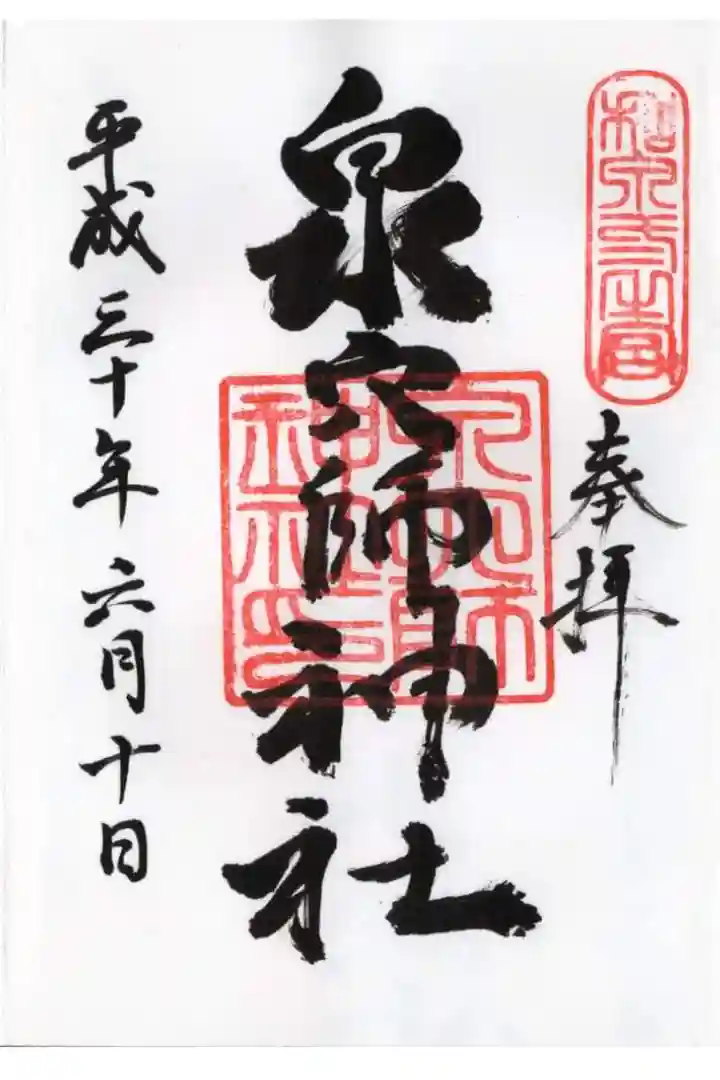 和泉二之宮
奉拝
泉穴師神社
泉穴師神社印
平成三十年六月十日